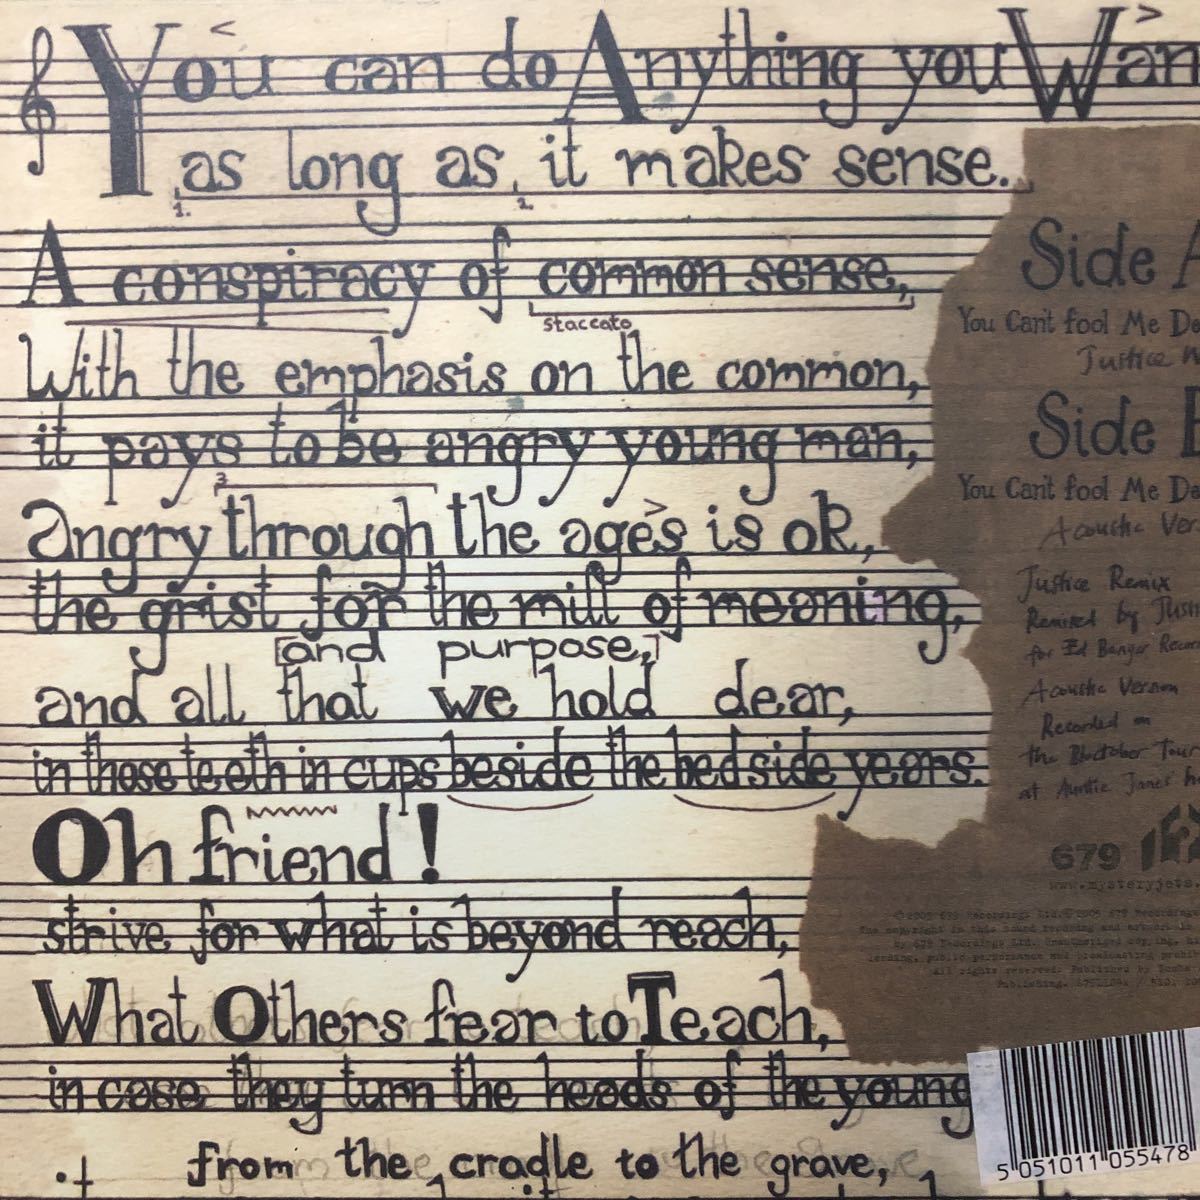 You can do Anything you Wan
as long as, it makes sense.
1. 2.
A conspiracy of common sense,
staccato
With the emphasis on the common,
it pays to be angry young man,
3
angry through the ages is ok,
the grist for the mill of meaning,
[and purpose,]
and all that we hold dear,
in those teeth in cups beside the bedside years.
Oh friend!
strive for what is beyond reach,
What Others fear to Teach,
in case they turn the heads of the young
from the cradle to the grave,
Side A
You Can't fool Me De
Justice
Side
You Can't fool Me De
Acoustic Ver
Justice Remix
Remixed by Just
for Ed Banger Recor
Acoustic Version
Recorded on
the Blactober Tour
at Auntie Janes' h
679
www.mysteryjets.
by 679 Recordings Ltd. Unauthorised copying,
lending, public performance and broadcasting prohi
all rights reserved. Published by
Publishing.
5 051011 055478